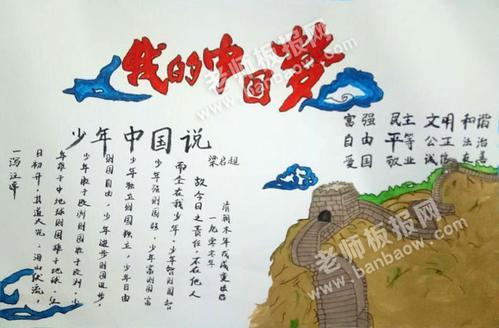 我的中国梦
富强 民主 文明 和谐
自由 平等 公正 法治
爱国 敬业 诚信 友善
少年中国说
梁启超
一九零零年
故今日之责任,不在他人
而全在我少年,少年智则国智
少年强则国强,少年富则国富
少年独立则国独立,少年自由
则国自由,少年进步则国进步,
少年胜于欧洲则国胜于欧洲,少
年雄于地球则国雄于地球,红
日初开,其道大光,河出伏流,
一泻汪洋
老师板报网
www.banbaow.com
老师板报网
www.banbaow.com